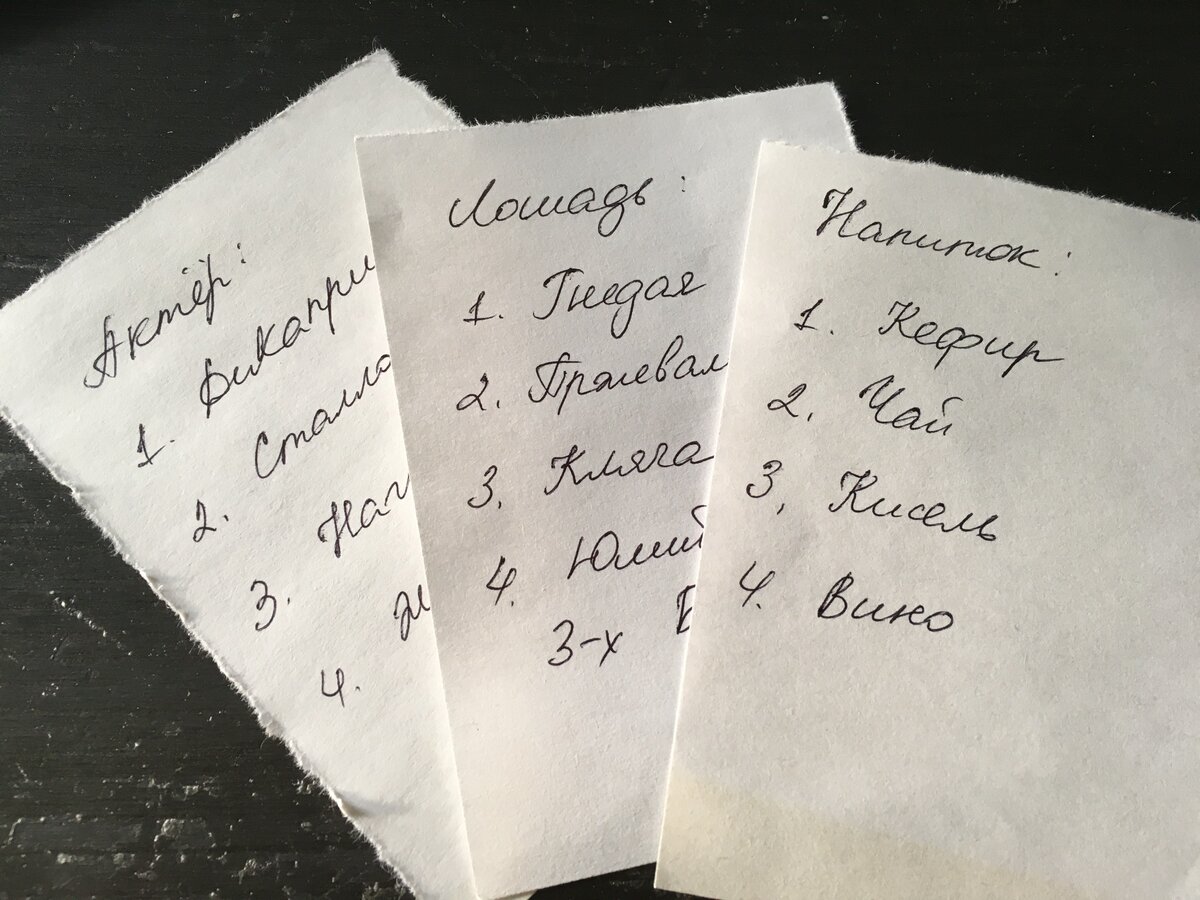 Актёр:
1. Дикапри
2. Сталло
3. Наг
4.
Лошадь:
1. Гнедая
2. Пржевал
3. Кляча
4. Юлий
3-х
Напиток:
1. Кефир
2. Чай
3. Кисель
4. Вино